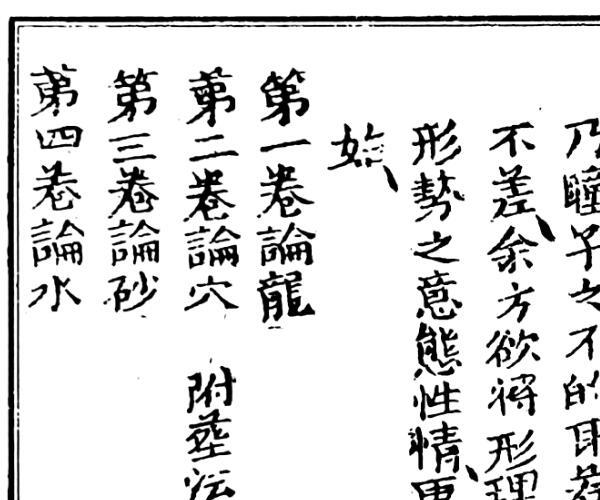 乃瞳子之不的耳
不差余方欲將形理
形勢之意態性情
始
第一卷論龍
第二卷論穴 附葬法
第三卷論砂
第四卷論水